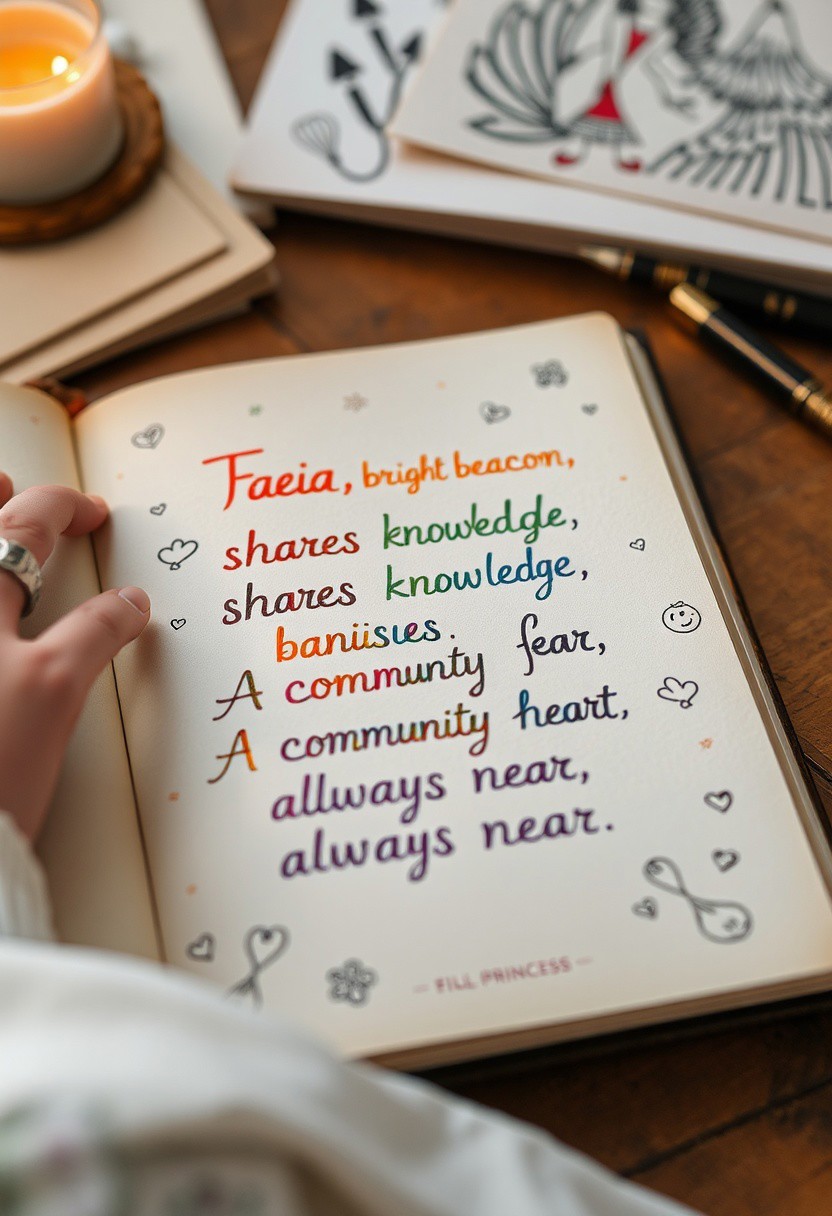 Faeia, bright beacom,
shares knowledge,
shares knowledge,
baniisues.
A communty fear,
A community heart,
allways near,
always near.
— FILL PRINCESS —